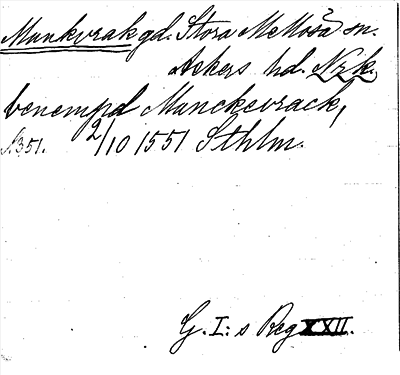 Munkvrak gd. Stora Mellösa sn.
Askers hd. Nrk.
benempd Manckevrack,
S. 351. 2/10 1551 Sthlm.
G. I:s Reg XXII.